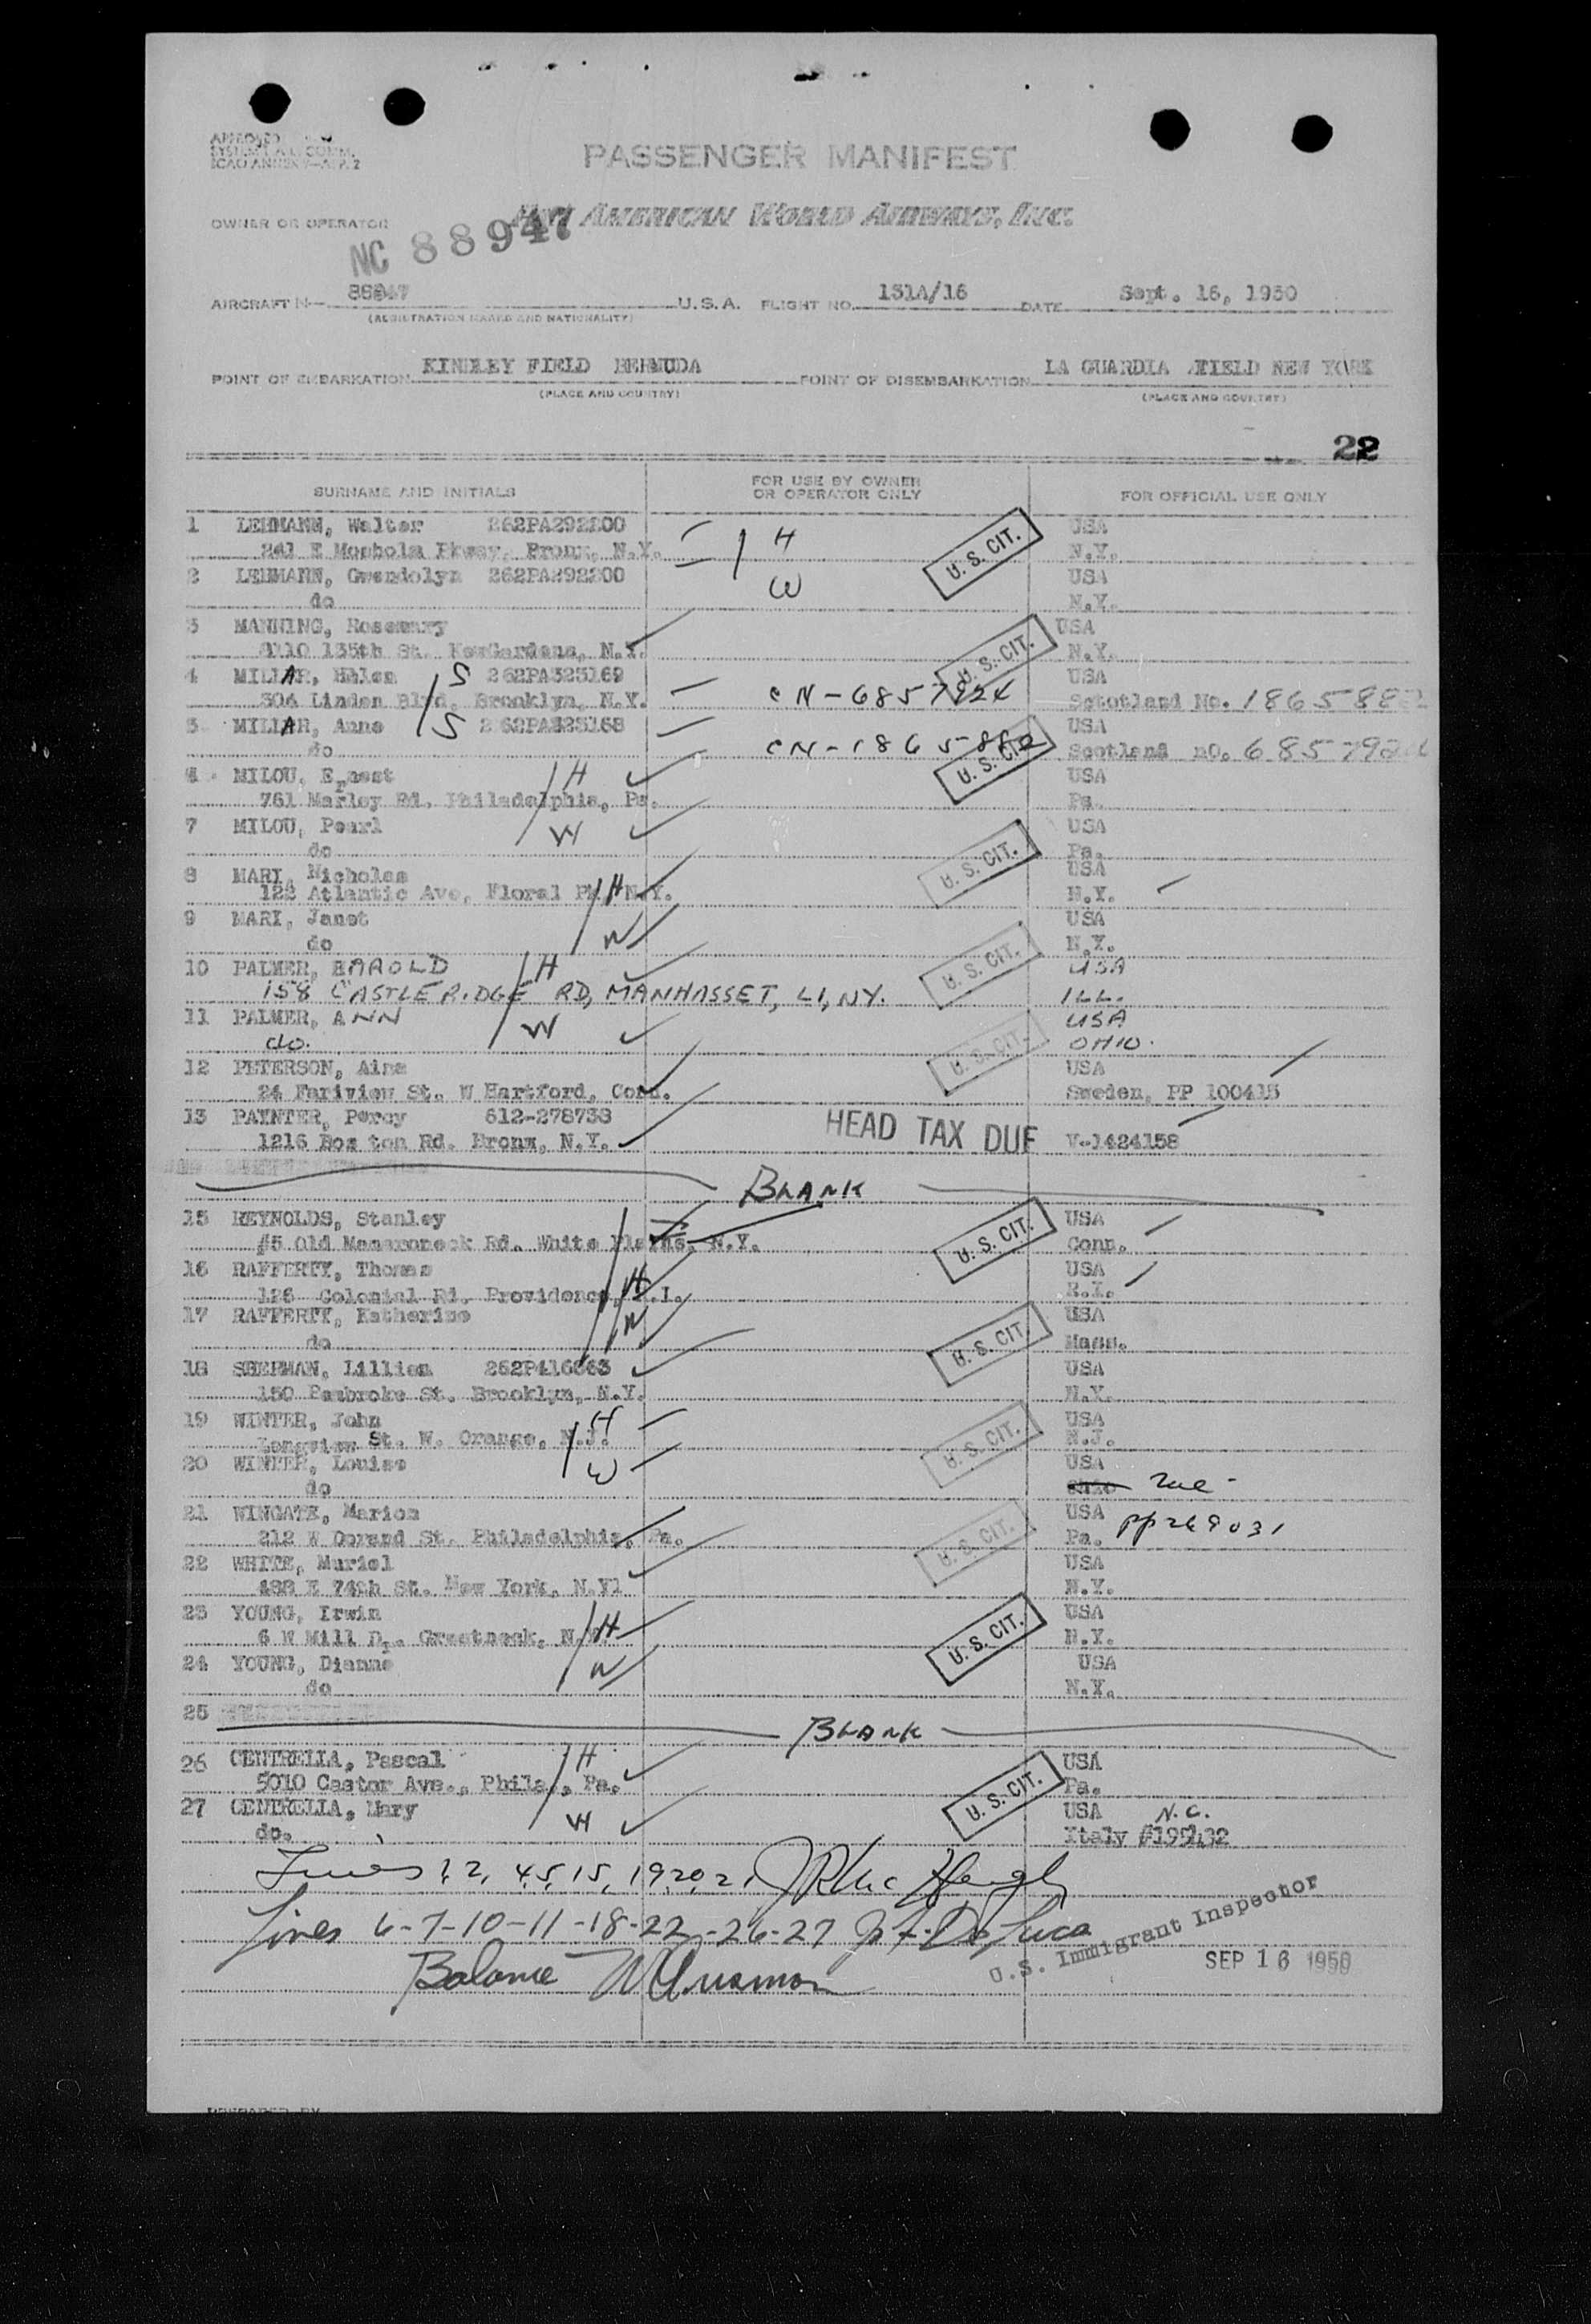 PASSENGER MANIFEST
OWNER OR OPERATOR PAN AMERICAN WORLD AIRWAYS, INC.
NC 88947
AIRCRAFT N— 88947 U.S.A. FLIGHT NO. 131A/16 DATE Sept. 16, 1950
(REGISTRATION MARKS AND NATIONALITY)
POINT OF EMBARKATION KINDLEY FIELD BERMUDA POINT OF DISEMBARKATION LA GUARDIA FIELD NEW YORK
(PLACE AND COUNTRY) (PLACE AND COUNTRY)
22
SURNAME AND INITIALS FOR USE BY OWNER OR OPERATOR ONLY FOR OFFICIAL USE ONLY
1 LEHMANN, Walter 262PA292200 H U. S. CIT. USA
241 E Mosholm Pkway, Bronx, N.Y. N.Y.
2 LEHMANN, Gwendolyn 262PA292200 W USA
do N.Y.
3 MANNING, Rosemary U. S. CIT. USA
135th St. KewGardens, N.Y. N.Y.
4 MILLAR, Helen S 262PA325169 USA
304 Linden Blvd, Brooklyn, N.Y. CN-6857924 Scotland No.
5 MILLAR, Anne S 262PA325168 USA
do U. S. CIT. Scotland nO.
MILOU, Ernest H USA
761 Marley Rd. Philadelphia, Pa. Pa.
7 MILOU, Pearl W U. S. CIT. USA
do Pa.
8 MARI, Nicholas USA
122 Atlantic Ave, Floral Pk, H N.Y. N.Y.
9 MARI, Janet W USA
do N.Y.
10 PALMER, HAROLD H U. S. CIT. USA
158 CASTLERIDGE RD, MANHASSET, LI, NY. ILL.
11 PALMER, ANN W U. S. CIT. USA
do. OHIO.
12 PETERSON, Aina USA
24 Fariview St. W Hartford, Conn. Sweden, PP 100415
13 PAYNTER, Percy 612-278738 HEAD TAX DUE
1216 Bos ton Rd. Bronx, N.Y. V-1424158
BLANK
15 REYNOLDS, Stanley U. S. CIT. USA
#5 Old Mamaroneck Rd. White Plains, N.Y. Conn.
16 RAFFERTY, Thomas USA
126 Colonial Rd. Providence, H R.I. R.I.
17 RAFFERTY, Katherine W U. S. CIT. USA
do Mass.
18 SHERMAN, Lillian USA
150 Pembroke St. Brooklyn, N.Y. N.Y.
19 WINTER, John H U. S. CIT. USA
Longview St. W. Orange, N.J. N.J.
20 WINTER, Louise W USA
do
21 WINGATE, Marion U. S. CIT. USA PP269031
212 W St. Philadelphia, Pa. Pa.
22 WHITE, Muriel USA
488 E 74th St. New York, N.Yl N.Y.
23 YOUNG, Irwin H U. S. CIT. USA
6 W Mill Dr. Greatneck, N.Y. N.Y.
24 YOUNG, Dianne W USA
do N.Y.
25 BLANK
26 CENTRELLA, Pascal H U. S. CIT. USA
5010 Castor Ave., Phila., Pa. Pa.
27 CENTRELLA, Mary W USA N.C.
do. Italy
Lines 1, 2, 4, 5, 15, 19, 20, 21
Lines 6-7-10-11-18-22-26-27 De Luca
Balance
U.S. Immigrant Inspector
SEP 16 1950